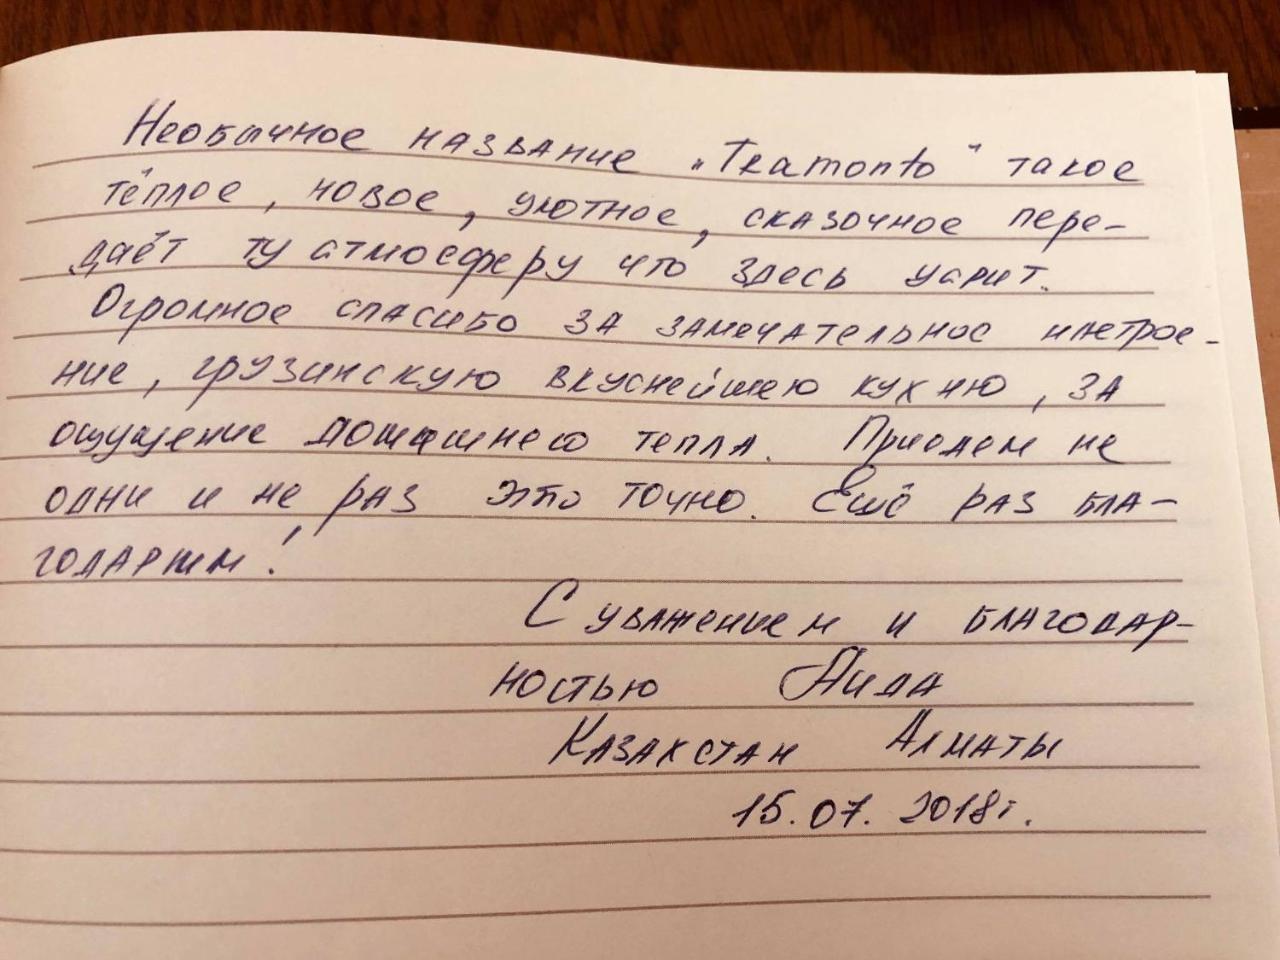 Необычное название „Tramonto“ такое
тёплое, новое, уютное, сказочное пере-
даёт ту атмосферу что здесь царит.
Огромное спасибо за замечательное настрое-
ние, грузинскую вкуснейшею кухню, за
ощущение домашнего тепла. Приедем не
одни и не раз это точно. Ещё раз бла-
годарим!
С уважением и благодар-
ностью Аида
Казахстан Алматы
15.07.2018г.